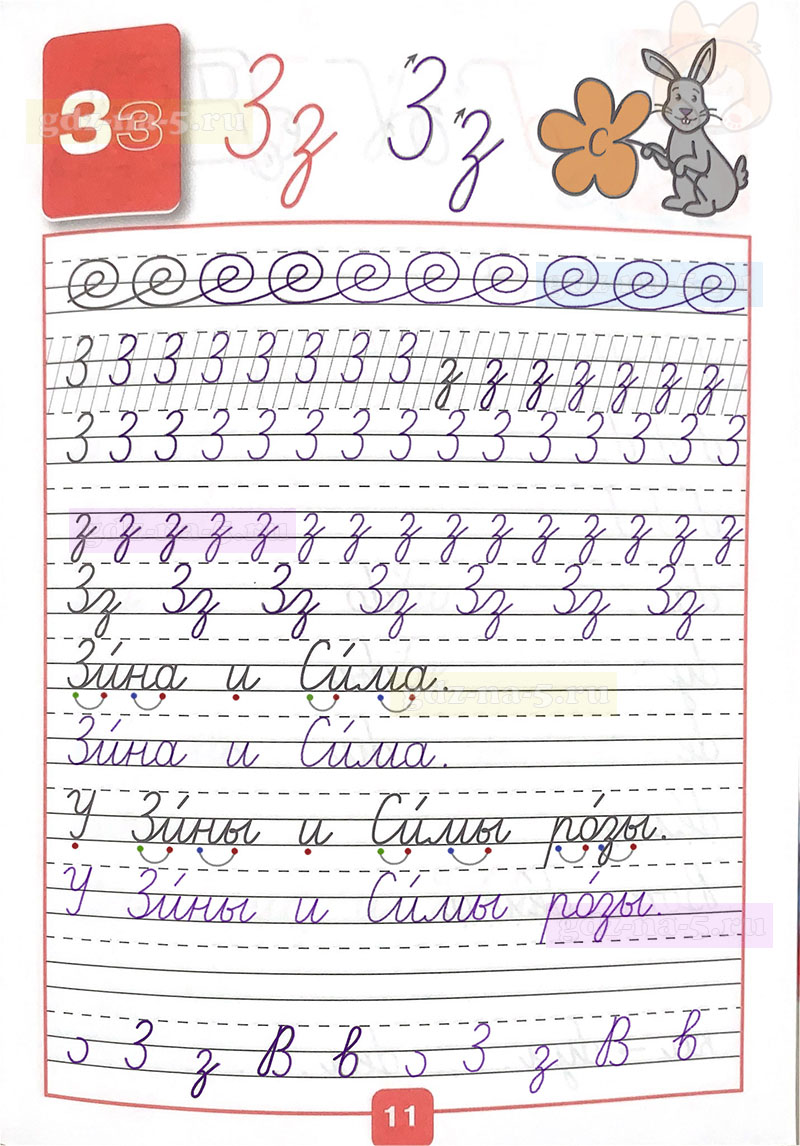 Зз З з З з С
gdz-na-5.ru
З З З З З З З З з з з з з з з
З З З З З З З З З З З З З З З
з з з з з з з з з з з з з з з
gdz-na-5.ru
Зз Зз Зз Зз Зз Зз Зз
Зи́на и Си́ма.
gdz-na-5.ru
Зи́на и Си́ма.
У Зи́ны и Си́мы ро́зы.
У Зи́ны и Си́мы ро́зы.
gdz-na-5.ru
З з В в З з В в
11